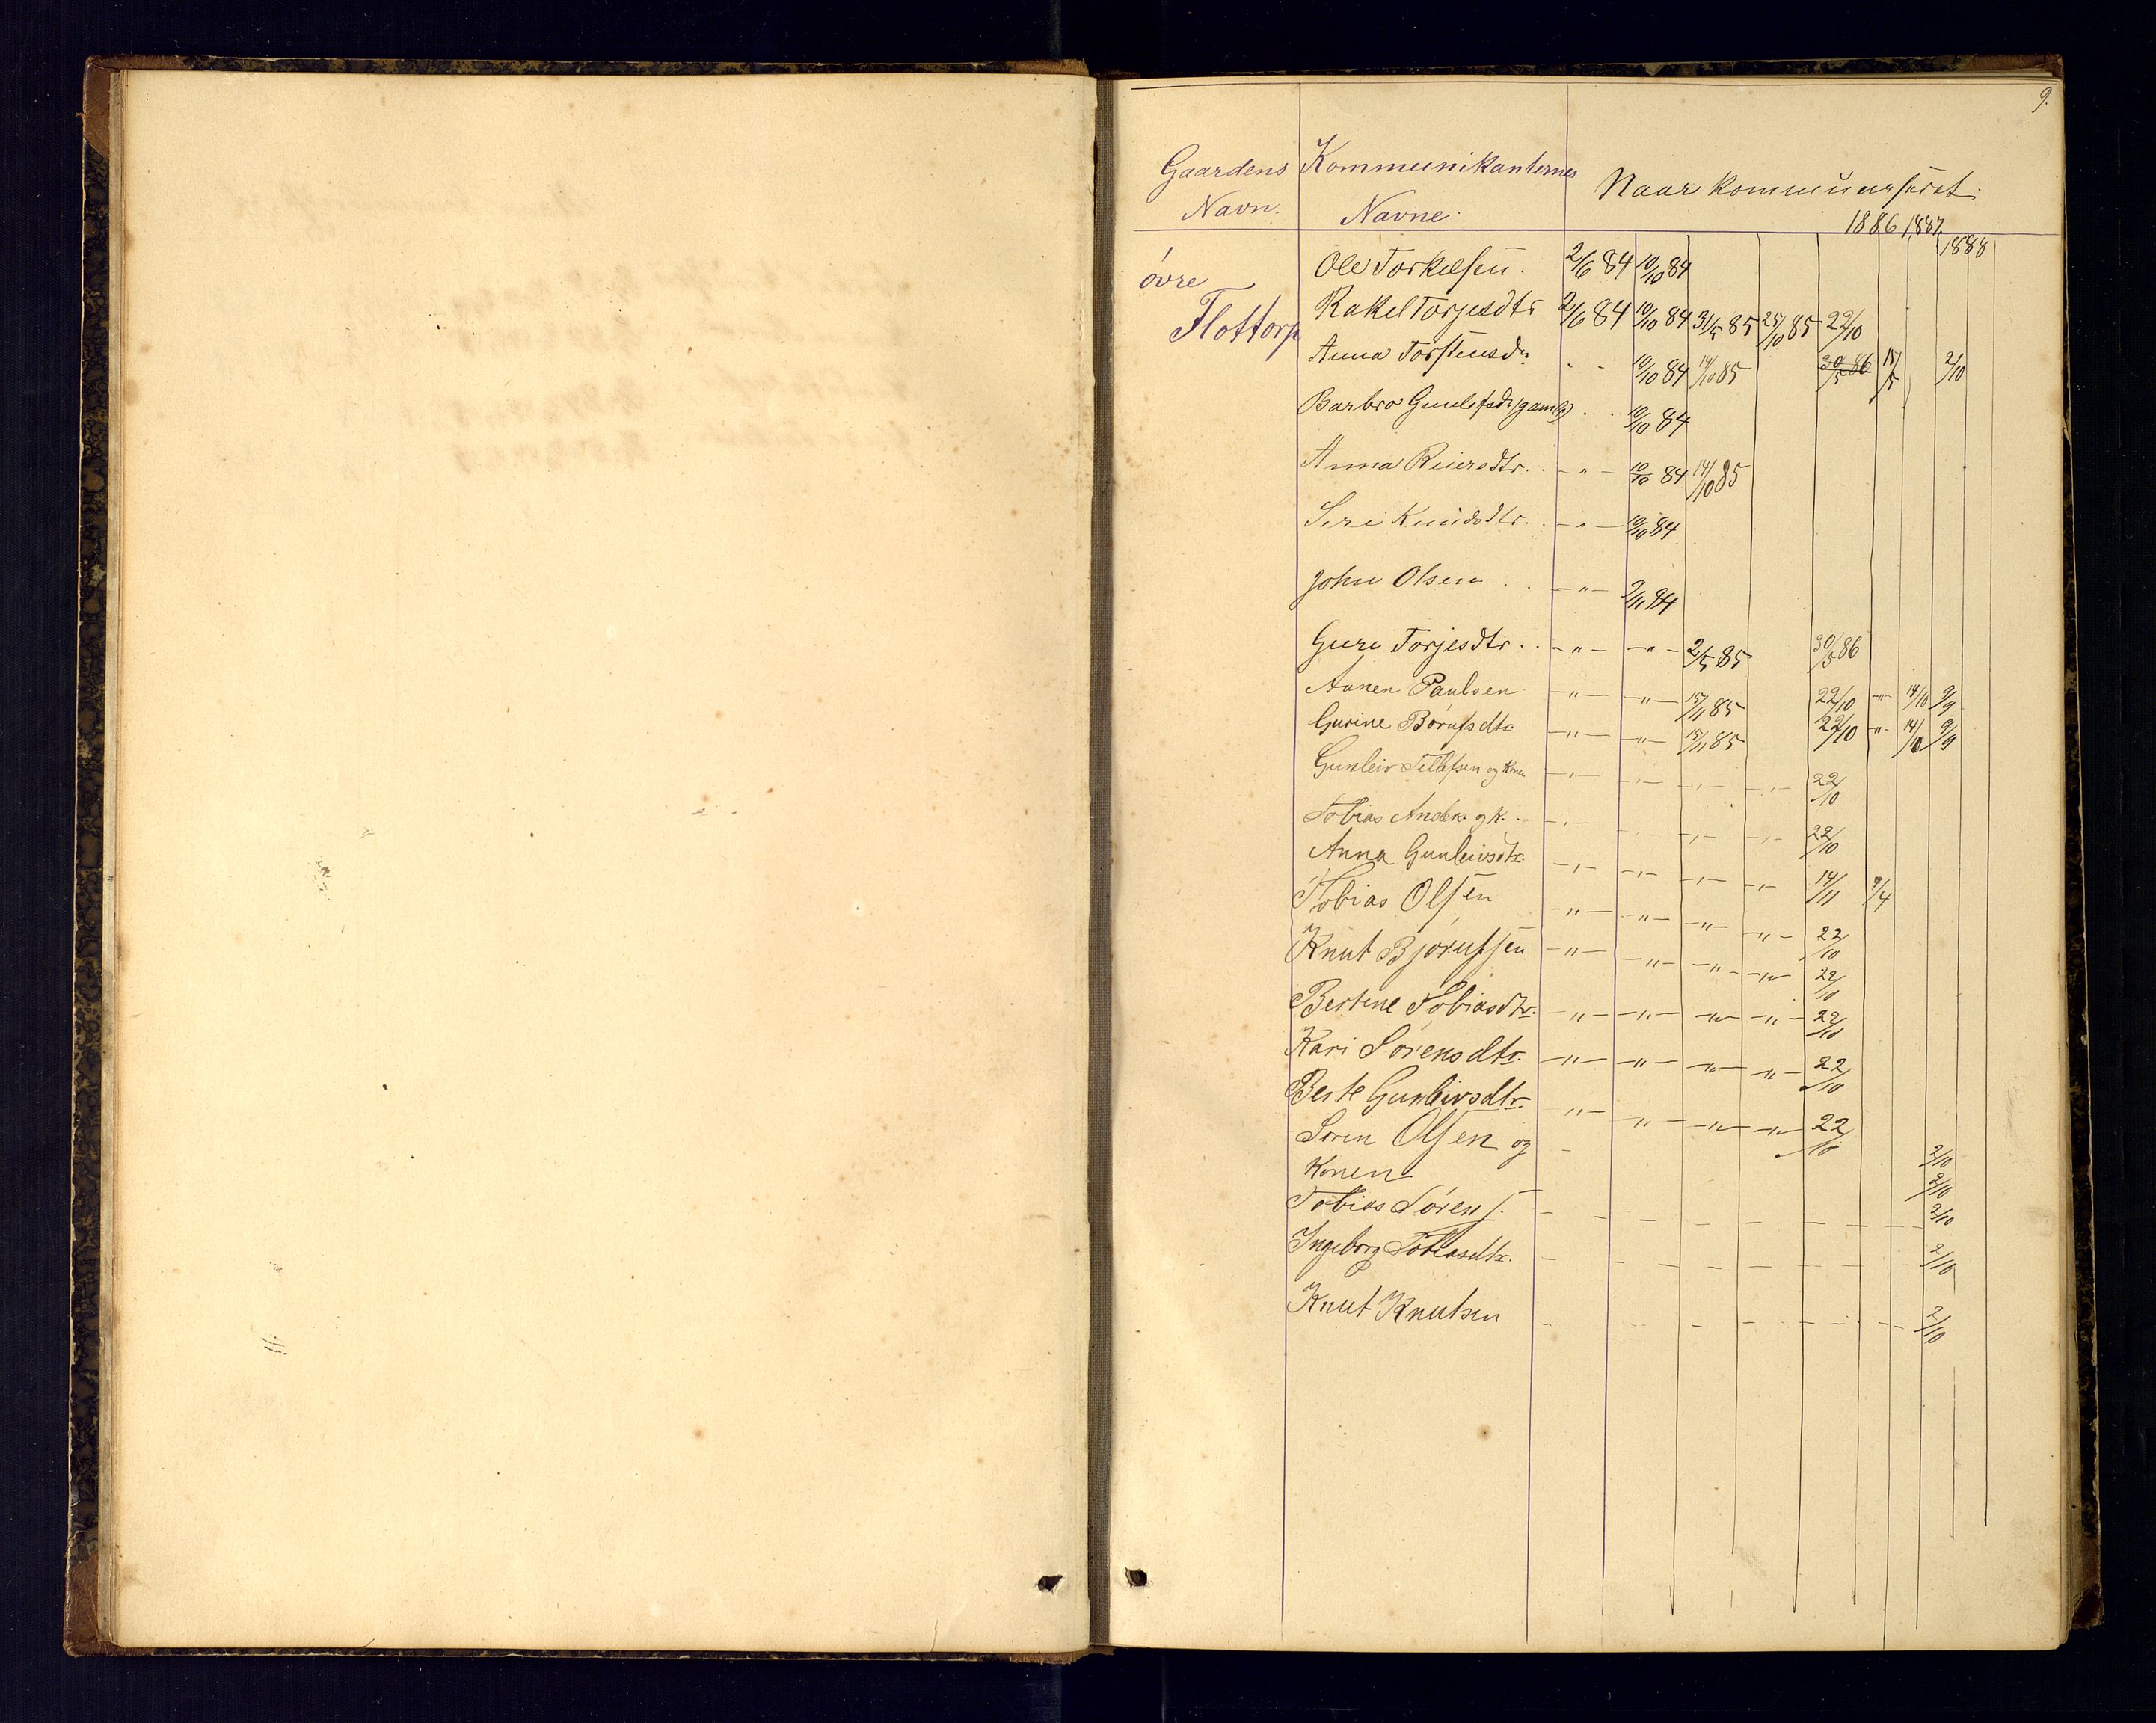 9.
Gaardens Kommunikanternes
Navn. Navne. Naar kommuniseret.
1886 1887 1888
övre Ole Torkelsen. 2/6 84 10/10 84
Flottorp Rakel Torjesdtr 2/6 84 10/10 84 31/5 85 25/10 85 22/10
Anna Torstensdr. " " 10/10 84 14/10 85 30/5 86 15/5 2/10
Barbro (gamle) . . 10/10 84
Anna Reiersdtr. . - " - 10/10 84 14/10 85
Siri Knudsdtr. . - " - 10/10 84
John Olsen . . - " - 2/11 84
Guro Torjesdtr. . - " - - " - 2/5 85 30/5 86
Aanen Paulsen - " - - " - 15/11 85 22/10 - " - 14/10 9/9
Gurine dtr - " - - " - 15/11 85 22/10 - " - 14/10 9/9
Gunleiv Tellefsen og Konen - " - - " - - " - - " - 22/10
Tobias Anders. og K. .. - " - - " - - " - - " - 22/10
Anna Gunleivsdtr. - " - - " - - " - - " - 14/11 8/4
Tobias Olsen - " - - " - - " - - " - 22/10
Knut - " - - " - - " - - " - 22/10
Bertine Tobiasdtr. - " - - " - - " - - " - 22/10
Kari Sørensdtr. - " - - " - - " - - " - 22/10
Berte Gunleivsdtr. - " - - " - - " - - " - 22/10
Søren Olsen og - 2/10
Konen 2/10
Tobias Sørens. - - - - - - - - 2/10
Ingeborg Tobiasdtr. - - - - - - - 2/10
Knut Knutsen - - - - - - - 2/10